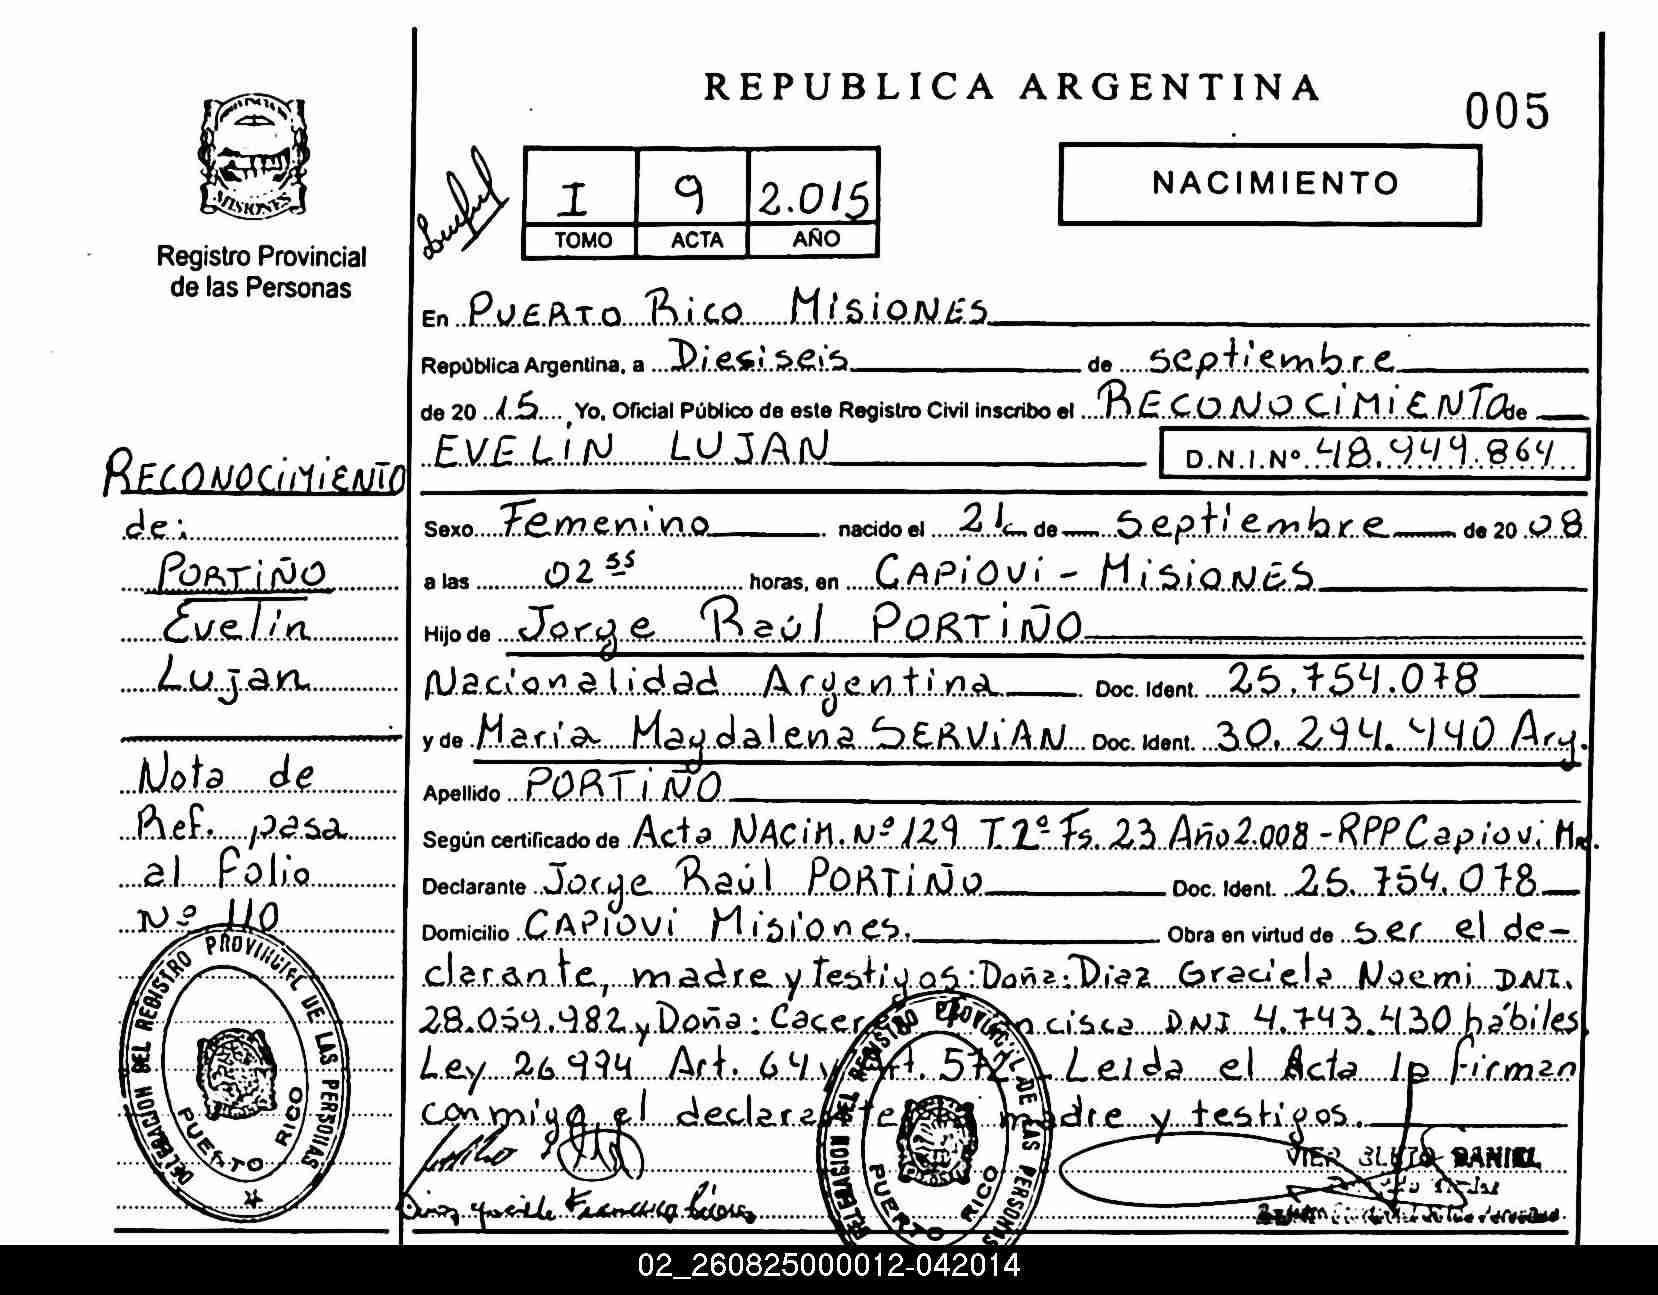 REPUBLICA ARGENTINA
005
MISIONES
Registro Provincial
de las Personas
I 9 2.015
TOMO ACTA AÑO
NACIMIENTO
En PUERTO Rico MISIONES
República Argentina, a Diesiseis de septiembre
de 2015 Yo, Oficial Público de este Registro Civil inscribo el RECONOCIMIENTO de
EVELIN LUJAN D.N.I.Nº 48.949.864
Sexo Femenino nacido el de septiembre de 2008
a las 02 55 horas, en CAPIOVI - MISIONES
Hijo de Jorge Raúl PORTIÑO
Nacionalidad Argentina Doc. Ident. 25.754.078
y de Maria Magdalena SERVIAN Doc. Ident. 30.294.440 Arg.
Apellido PORTIÑO
Según certificado de Acta NACIM. Nº 129 T.2º Fs. 23 Año 2.008 - RPP Capiovi
Declarante Jorge Raúl PORTIÑO Doc. Ident. 25.754.078
Domicilio CAPIOVI Misiones. Obra en virtud de ser el de-
clarante, madre y testigos: Doña: Diaz Graciela Noemi DNI.
28.059.982 y Doña: DNI 4.743.430 hábiles
Ley 26.994 Art. 64 y 572 - Leida el Acta lo firman
conmigo el declarante madre y testigos.
RECONOCIMIENTO
de:
PORTIÑO
Evelin
Lujan
Nota de
Ref. pasa
al Folio
Nº 110
DELEGACION DEL REGISTRO PROVINCIAL DE LAS PERSONAS
PUERTO RICO
DELEGACION DEL REGISTRO PROVINCIAL DE LAS PERSONAS
PUERTO RICO
DANIEL
02_260825000012-042014